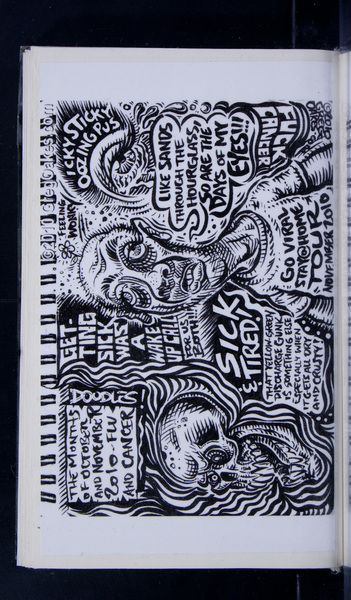 ©2011 fredoakes.com
ICKY STICKY
OOZING PUS
FEELING
WONKY
LIKE SANDS
THROUGH THE
HOURGLASS,
SO ARE THE
DAYS OF MY
EYES!!!
GO VIRAL
STAY@HOME
TOUR
NOVEMBER 2010
GET-
TING
SICK
WAS
A
WAKE
UP CALL
FOR
SICK
& TIRED!
THAT YELLOW-GREEN
DISCHARGE GUNK
IS SOMETHING ELSE
ESPECIALLY WHEN
IT GETS ALL DRY
AND CRUSTY!
DOODLES
THE MONTHS
OF OCTOBER
AND NOVEMBER
2010-FLU
AND CANCER